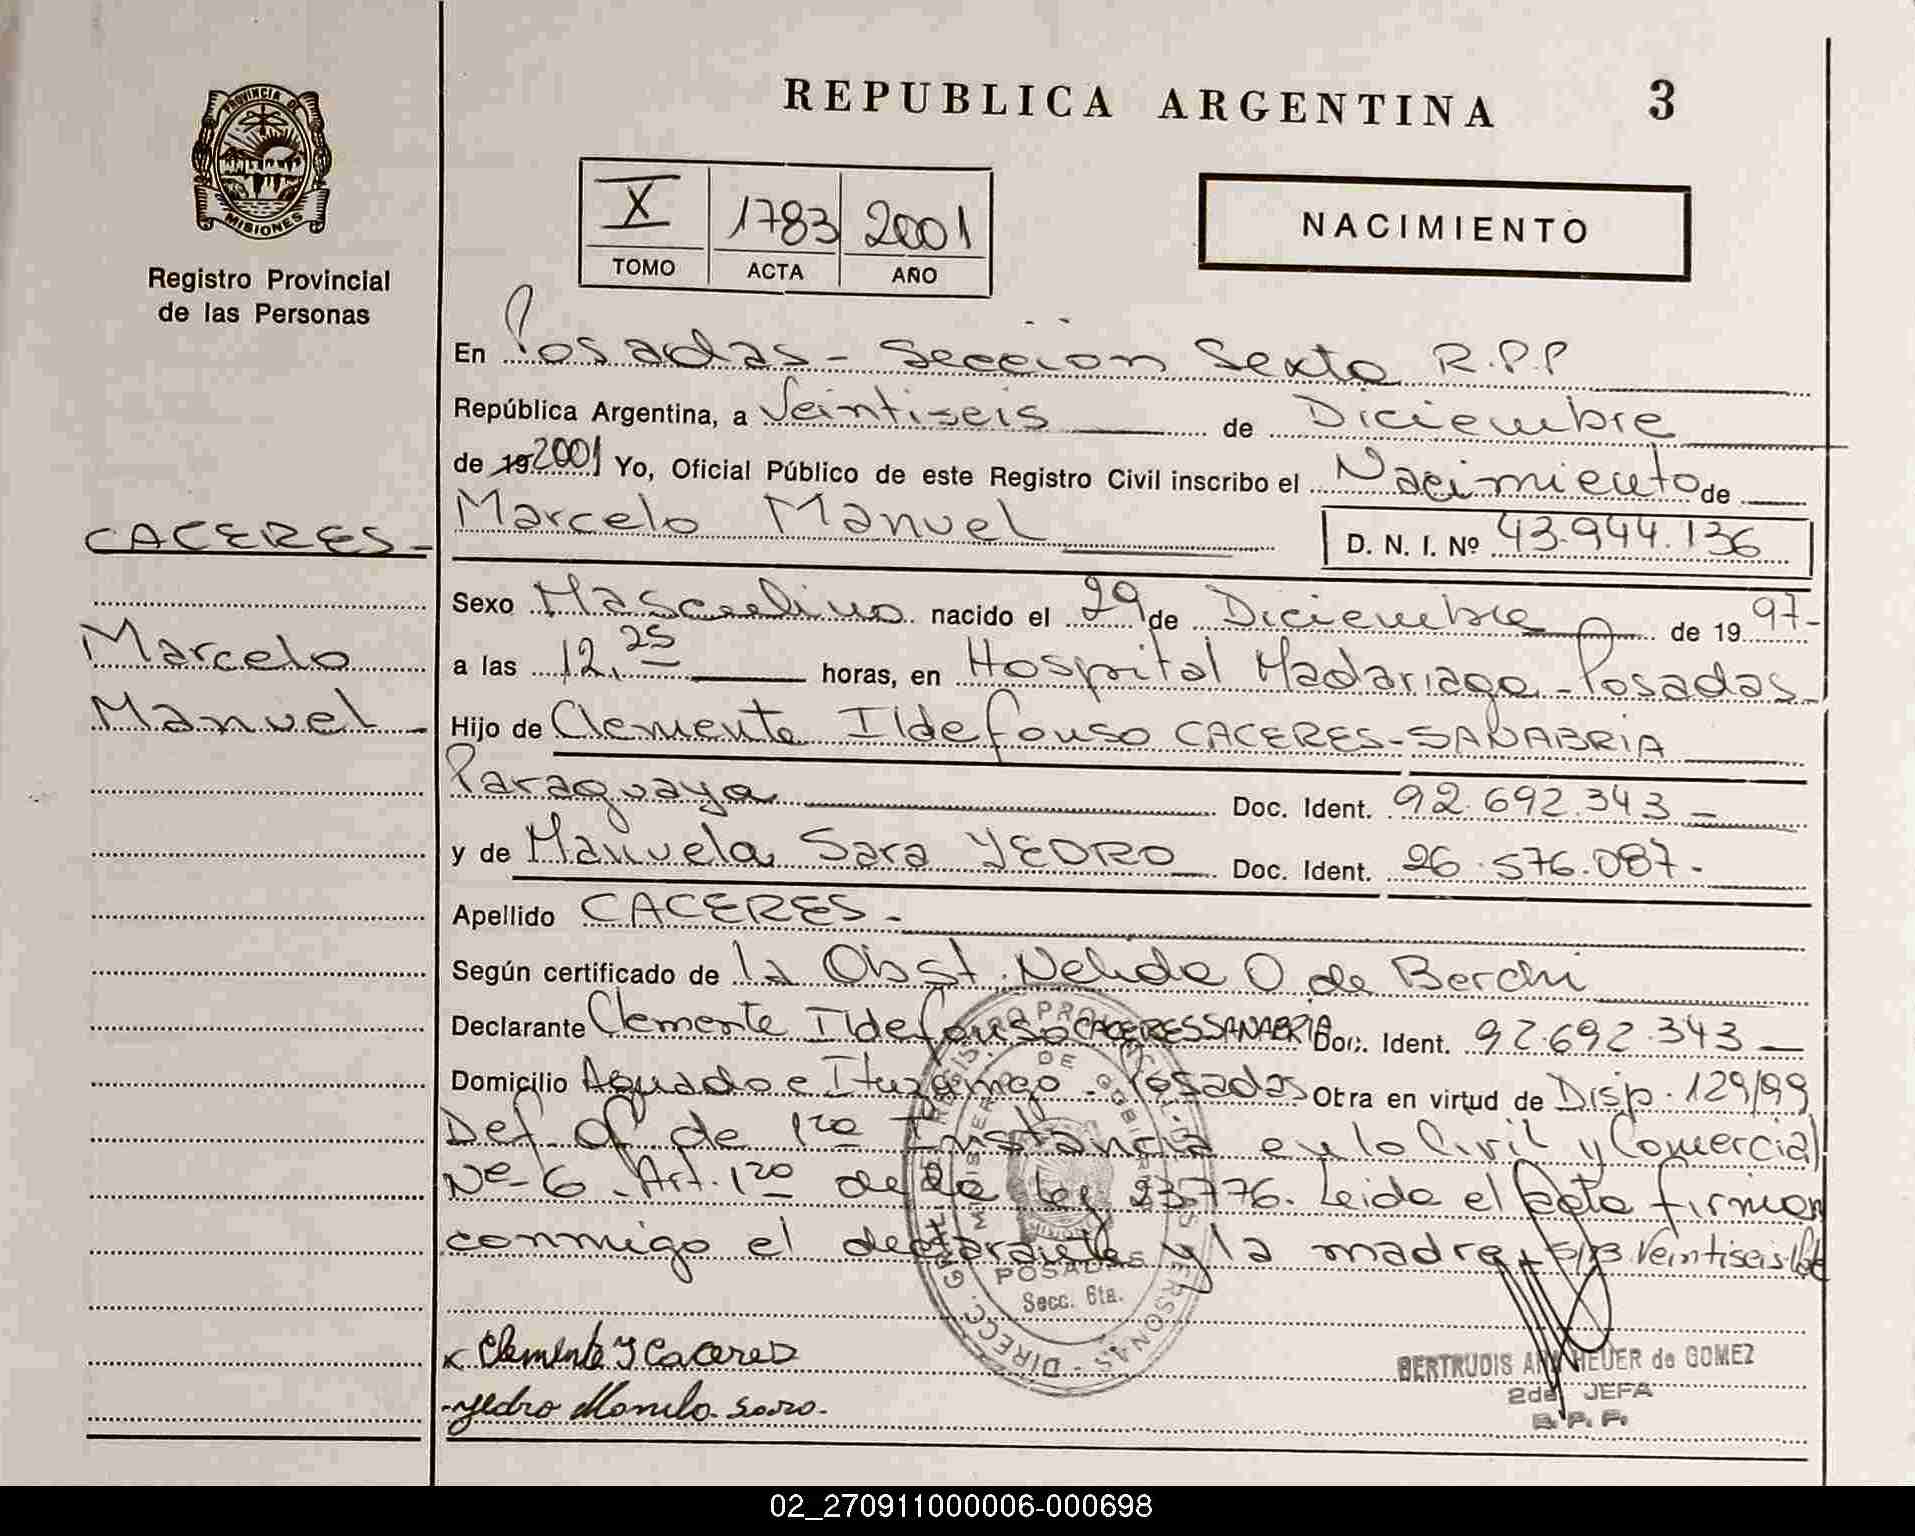 REPUBLICA ARGENTINA 3
PROVINCIA DE MISIONES
Registro Provincial
de las Personas
X 1783 2001
TOMO ACTA AÑO
NACIMIENTO
En Posadas - Sección Sexta R.P.P
República Argentina, a Veintiseis de Diciembre
de 19 2001 Yo, Oficial Público de este Registro Civil inscribo el Nacimiento de
Marcelo Manuel D. N. I. Nº 43.944.136
CACERES -
Marcelo
Manuel -
Sexo Masculino nacido el 29 de Diciembre de 19 97-
a las 12,25 horas, en Hospital Madariaga - Posadas -
Hijo de Clemente Ildefonso CACERES-SANABRIA
Paraguaya Doc. Ident. 92.692.343 -
y de Manuela Sara YEDRO Doc. Ident. 26.576.087 -
Apellido CACERES -
Según certificado de la Obst. Nelida O de Berchi
Declarante Clemente Ildefonso CACERES SANABRIA Doc. Ident. 92.692.343 -
Domicilio Aguado e Ituzaingo - Posadas Otra en virtud de Disp. 129/99
Def. Of. de 1ra Instancia en lo Civil y Comercial
Nº 6 - Art. 1ro de la Ley 23.776. Leida el Acta firman
conmigo el declarante y la madre, S/B Veintiseis
REGISTRO PROVINCIAL DE LAS PERSONAS - DIRECC. GRAL
MINISTERIO DE GOBIERNO
MISIONES
POSADAS
Secc. 6ta.
x Clemente Y Caceres
- Yedro Manuela Sara -
BERTRUDIS de GOMEZ
2da JEFA
R. P. P.
02_270911000006-000698